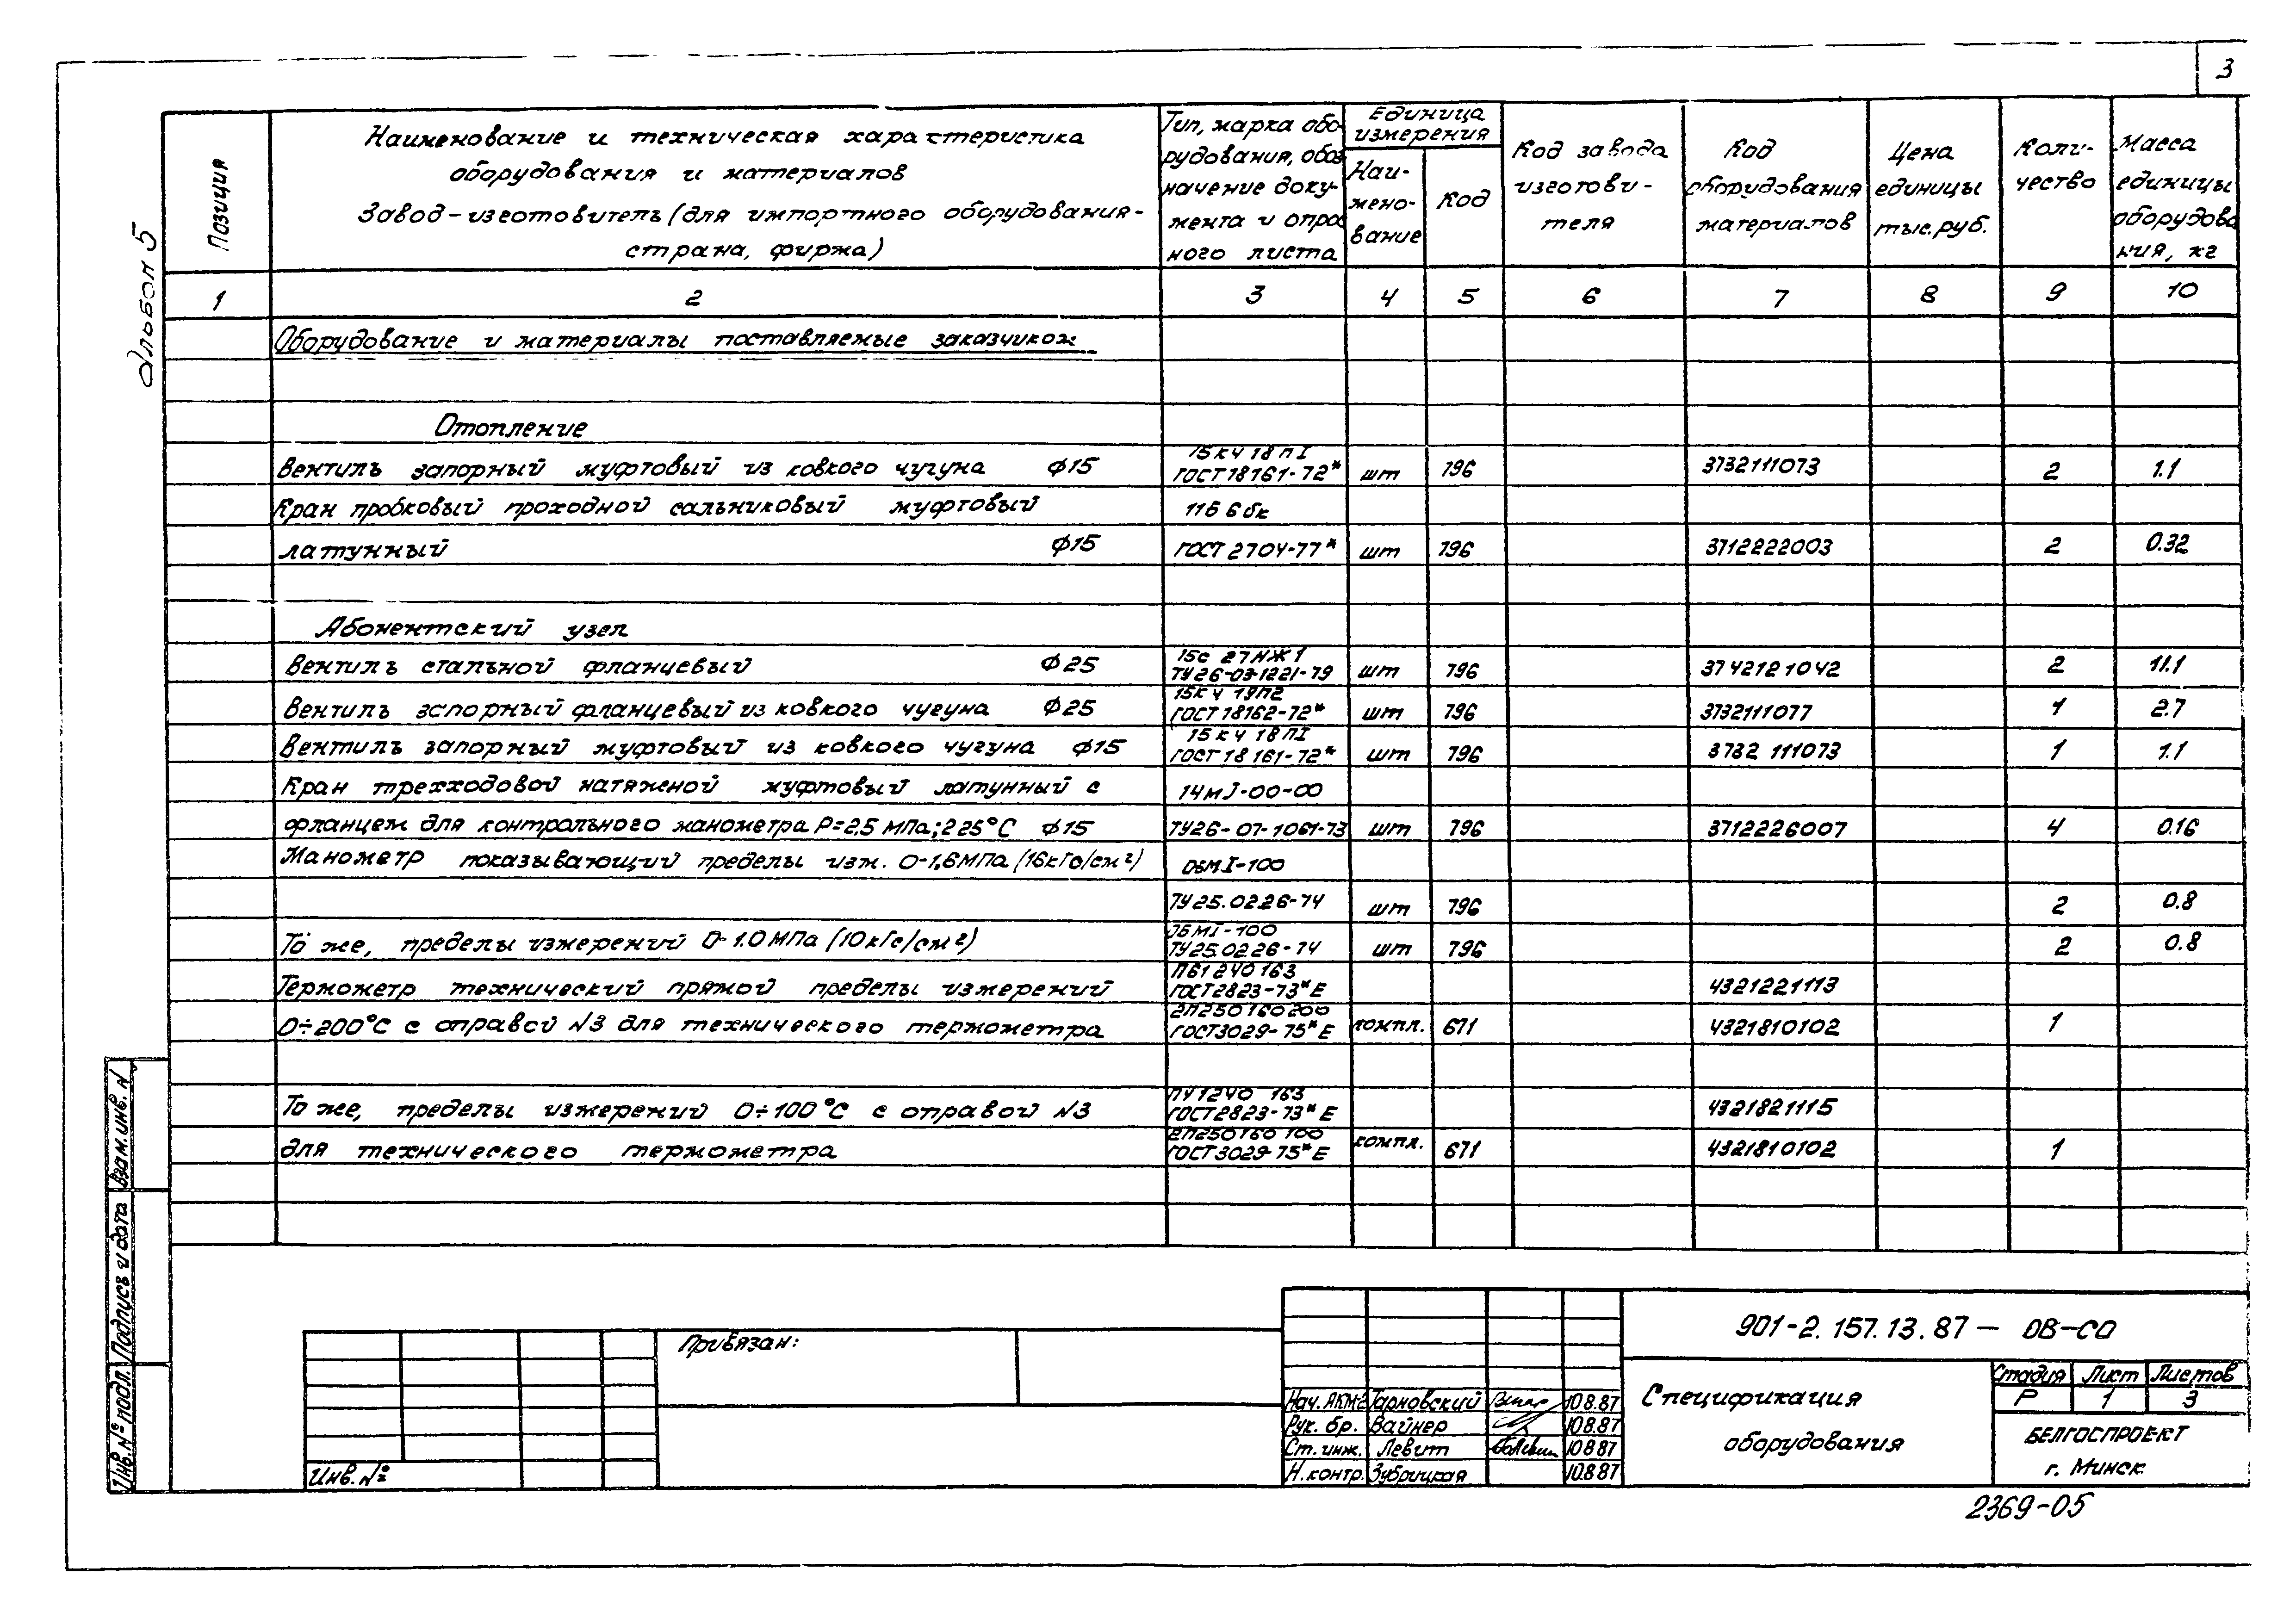 3
Альбом 5
Позиция
Наименование и техническая характеристика
оборудования и материалов
Завод-изготовитель (для импортного оборудования-
страна, фирма)
Тип, марка обо-
рудования, обоз
начение доку-
мента и опрос
ного листа
Единица
измерения
Наи-
мено-
вание
Код
Код завода
изготови-
теля
Код
оборудования
материалов
Цена
единицы
тыс.руб.
Коли-
чество
Масса
единицы
оборудова
ния, кг
1 2 3 4 5 6 7 8 9 10
Оборудование и материалы поставляемые заказчиком
Отопление
15кч 18пI
Вентиль запорный муфтовый из ковкого чугуна ф15 ГОСТ18161-72* шт 796 3732111073 2 1.1
Кран пробковый проходной сальниковый муфтовый 11б 6бк
латунный ф15 ГОСТ 2704-77* шт 796 3712222003 2 0.32
Абонентский узел
15с 27нж1
Вентиль стальной фланцевый ф25 ТУ26-03-1221-79 шт 796 3742121042 2 11.1
15кч 19п2
Вентиль запорный фланцевый из ковкого чугуна ф25 ГОСТ18162-72* шт 796 3732111077 1 2.7
15кч 18пI
Вентиль запорный муфтовый из ковкого чугуна ф15 ГОСТ18161-72* шт 796 3732 111073 1 1.1
Кран трехходовой натяжной муфтовый латунный с 14мI-00-00
фланцем для контрольного манометра Р=2,5 МПа; 225°С ф15 ТУ26-07-1061-73 шт 796 3712226007 4 0.16
Манометр показывающий пределы изм. 0-1,6МПа (16кГс/см²) ОБМI-100
ТУ25.02.26-74 шт 796 2 0.8
ОБМI-100
То же, пределы измерений 0-1.0МПа (10кГс/см²) ТУ25.02.26-74 шт 796 2 0.8
П61240163
Термометр технический прямой пределы измерений ГОСТ2823-73*Е 4321221113
2П250160200
0÷200°С с оправой N3 для технического термометра ГОСТ3029-75*Е компл. 671 4321810102 1
ПУ1240 163
То же, пределы измерений 0÷100°С с оправой N3 ГОСТ2823-73*Е 4321821115
2П250160 100
для технического термометра ГОСТ3029-75*Е компл. 671 4321810102 1
Взам.инв. N
Подпись и дата
Инв.№ подл.
Привязан:
Инв.№
901-2.157.13.87 - ОВ-СО
Нач. АКМ-2 Тарновский 10.8.87
Рук. бр. Вайнер 10.8.87
Ст. инж. Левит 10.8.87
Н.контр. Зубрицкая 10.8.87
Спецификация
оборудования
Стадия Лист Листов
Р 1 3
БЕЛГОСПРОЕКТ
г. Минск
2369-05